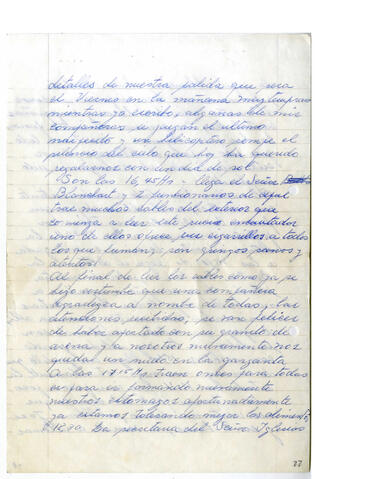 detalles de nuestra salida que sera
el Viernes en la mañana muy temprano
mientras yo escribo, algunas de mis
compañeros se juegan el ultimo
naipecito y un helicoptero rompe el
silencio del cielo que hoy ha querido
regalarnos con un dia de sol
Son las 16,45 Hs - llega el Señor
Blanchail y 2 funcionarios de aqui
trae muchos cables del exterior que
comienza a leer este joven encantador
uno de ellos ofrece sus cigarrillos a todos
los que fuman, son gringos sanos y
atentos!
Al final de leer los cables como ya se
hizo costumbre que una compañera
agradezca a nombre de todas, las
atenciones recibidas, se van felices
de haber aportado con su granito de
arena y a nosotros nuevamente nos
queda un nudo en la garganta
A las 17 15 Hs traen onces para todos
se para ir formando nuevamente
nuestros estomagos afortunadamente
ya estamos tolerando mejor los alimentos
18,30 La secretaria del Señor Iglesias
27